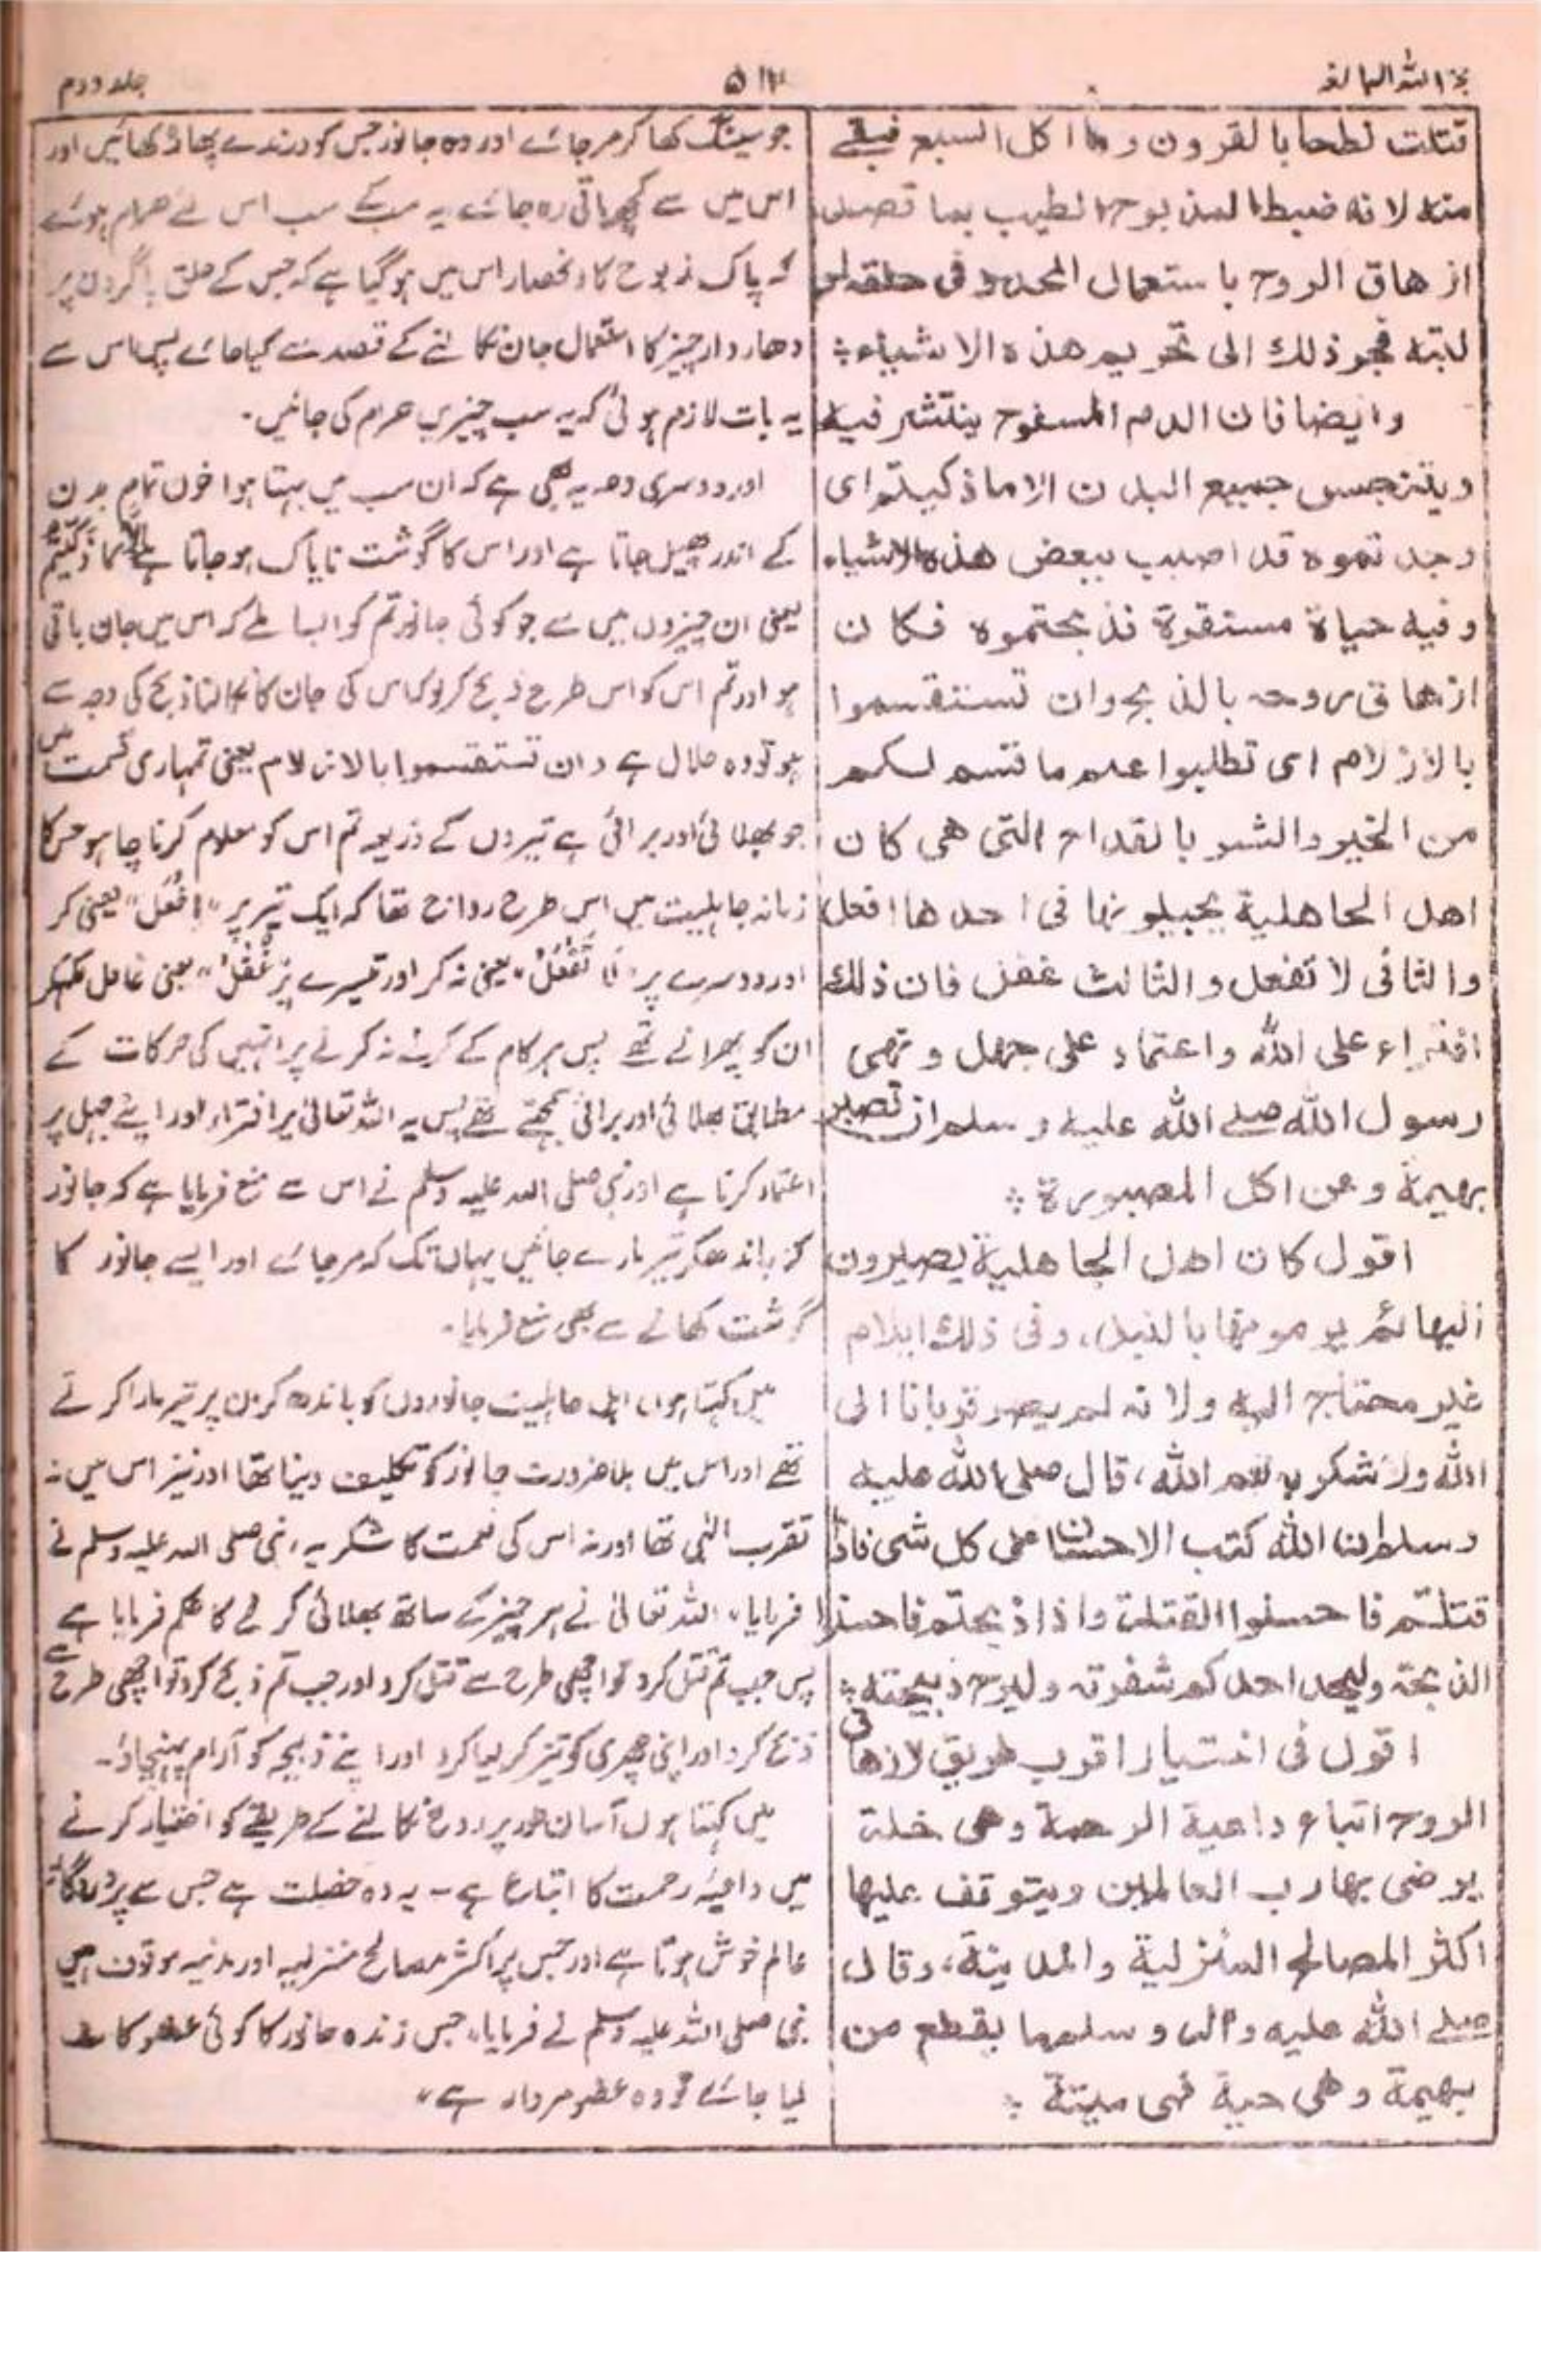 حجۃ اللہ البالغہ
۵۱۳
جلد دوم
قتلت نطحا بالقرون وما اكل السبع فبقے
منه لانه ضبط المذبوح الطيب بما قصد
ازهاق الروح باستعمال المحدد فى حلقه او
لبته فجر ذلك الى تحريم هذه الاشياء ؛
وايضا فان الدم المسفوح ينتشر فيه
ويتنجس جميع البدن الا ما ذكيتم اى
وجدتموه قد اصيب ببعض هذه الاشياء
وفيه حياة مستقرة فذبحتموه فكان
ازهاق روحه بالذبح وان تستقسموا
بالازلام اى تطلبوا علم ما قسم لكم
من الخير والشر بالقداح التى هى كان
اهل الجاهلية يجيلونها فى احدها افعل
والثانى لا تفعل والثالث غفل فان ذلك
افتراء على الله واعتماد على جهل ونهى
رسول الله صلے الله عليه وسلم ان تصبر
بهيمة وعن اكل المصبورة ؛
اقول كان اهل الجاهلية يصبرون
البهائم يرمونها بالنبل، وفى ذلك ايلام
غير محتاج اليه ولانه لم يصر قربانا الى
الله ولا شكر به نعم الله، قال صلى الله عليه
وسلم ان الله كتب الاحسان على كل شىء فاذا
قتلتم فاحسنوا القتلة واذا ذبحتم فاحسنوا
الذبحة وليحد احدكم شفرته وليرح ذبيحته ؛
اقول فى اختيار اقرب طريق لازهاق
الروح اتباع داعية الرحمة وهى خلة
يرضى بها رب العالمين ويتوقف عليها
اكثر المصالح المنزلية والمدينة، وقال
صلے الله عليه واله وسلم ما يقطع من
بهيمة وهى حية فهى ميتة ؛
جو سینگ کھا کر مر جائے اور وہ جانور جس کو درندے پھاڑ کھائیں اور
اس میں سے کچھ باقی رہ جائے یہ سب کے سب اس لئے حرام ہوئے
کہ پاک مذبوح کا انحصار اس میں ہو گیا ہے کہ جس کے حلق یا گردن پر
دھار دار چیز کا استعمال جان نکالنے کے قصد سے کیا جائے پس اس سے
یہ بات لازم ہوئی کہ یہ سب چیزیں حرام کی جائیں۔
اور دوسری وجہ یہ بھی ہے کہ ان سب میں بہتا ہوا خون تمام بدن
کے اندر پھیل جاتا ہے اور اس کا گوشت ناپاک ہو جاتا ہے اِلَّا مَا ذَكَّيْتُمْ
یعنی ان چیزوں میں سے جو کوئی جانور تم کو ایسا ملے کہ اس میں جان باقی
ہو اور تم اس کو اس طرح ذبح کر لو کہ اس کی جان کا نکالنا ذبح کی وجہ سے
ہو تو وہ حلال ہے وان تستقسموا بالازلام یعنی تمہاری قسمت میں
جو بھلائی اور برائی ہے تیروں کے ذریعہ تم اس کو معلوم کرنا چاہو جس کا
زمانہ جاہلیت میں اس طرح رواج تھا کہ ایک تیر پر "اِفْعَل" یعنی کر
اور دوسرے پر "لَا تَفْعَلْ" یعنی نہ کر اور تیسرے پر "غُفْلٌ" یعنی غافل لکھ کر
ان کو پھراتے تھے پس ہر کام کے کرنے نہ کرنے پر انہیں کی حرکات کے
مطابق بھلائی اور برائی سمجھتے تھے پس یہ اللہ تعالیٰ پر افتراء اور اپنے جہل پر
اعتماد کرنا ہے اور نبی صلی اللہ علیہ وسلم نے اس سے منع فرمایا ہے کہ جانور
کو باندھ کر تیر مارے جائیں یہاں تک کہ مر جائے اور ایسے جانور کا
گوشت کھانے سے بھی منع فرمایا۔
میں کہتا ہوں اہل جاہلیت جانوروں کو باندھ کر ان پر تیر مارا کرتے
تھے اور اس میں بلا ضرورت جانور کو تکلیف دینا تھا اور نیز اس میں نہ
تقرب الٰہی تھا اور نہ اس کی نعمت کا شکریہ، نبی صلی اللہ علیہ وسلم نے
فرمایا، اللہ تعالیٰ نے ہر چیز کے ساتھ بھلائی کرنے کا حکم فرمایا ہے
پس جب تم قتل کرو تو اچھی طرح سے قتل کرو اور جب تم ذبح کرو تو اچھی طرح سے
ذبح کرو اور اپنی چھری کو تیز کر لیا کرو اور اپنے ذبیحہ کو آرام پہنچاؤ۔
میں کہتا ہوں آسان طور پر روح نکالنے کے طریقے کو اختیار کرنے
میں داعیۂ رحمت کا اتباع ہے۔ یہ وہ خصلت ہے جس سے پروردگار
عالم خوش ہوتا ہے اور جس پر اکثر مصالح منزلیہ اور مدنیہ موقوف ہیں
نبی صلی اللہ علیہ وسلم نے فرمایا، جس زندہ جانور کا کوئی عضو کاٹ
لیا جائے تو وہ عضو مردار ہے"